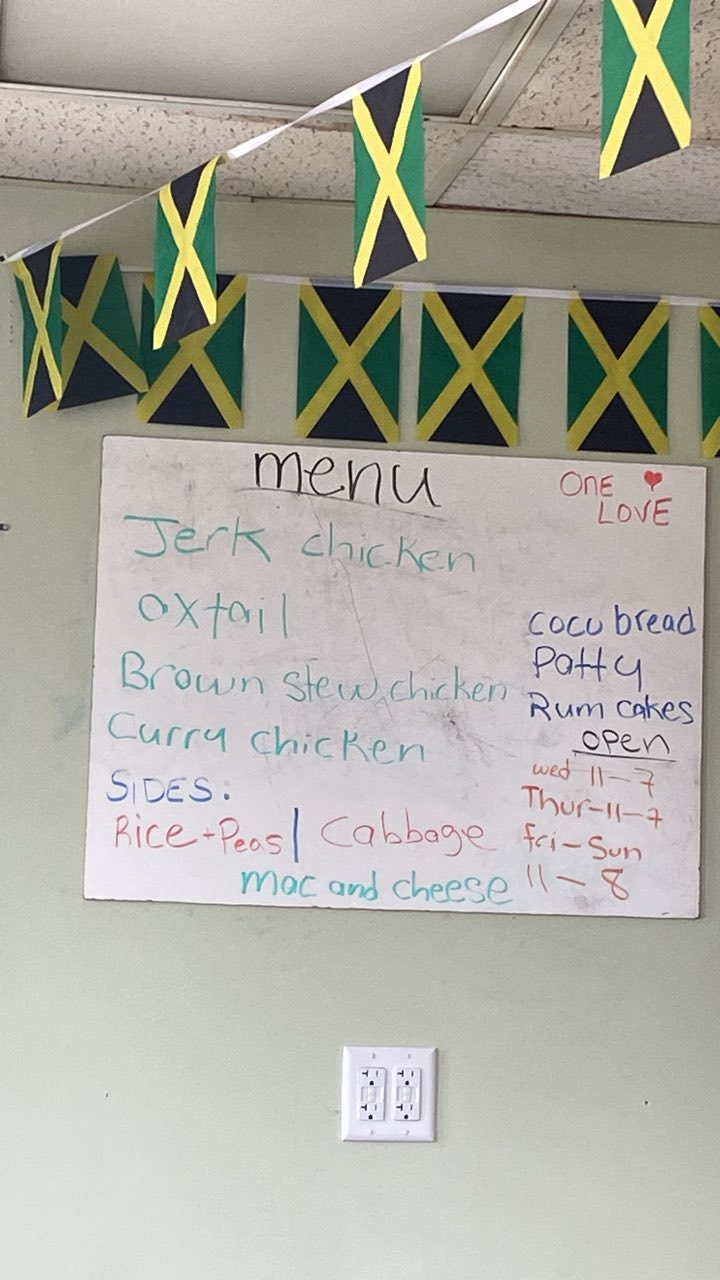 menu
ONE ♥
LOVE
Jerk chicken
oxtail
Brown stew chicken
Curry chicken
SIDES:
Rice + Peas | Cabbage
mac and cheese
coco bread
Patty
Rum cakes
open
wed 11-7
Thur-11-7
fri-Sun
11-8